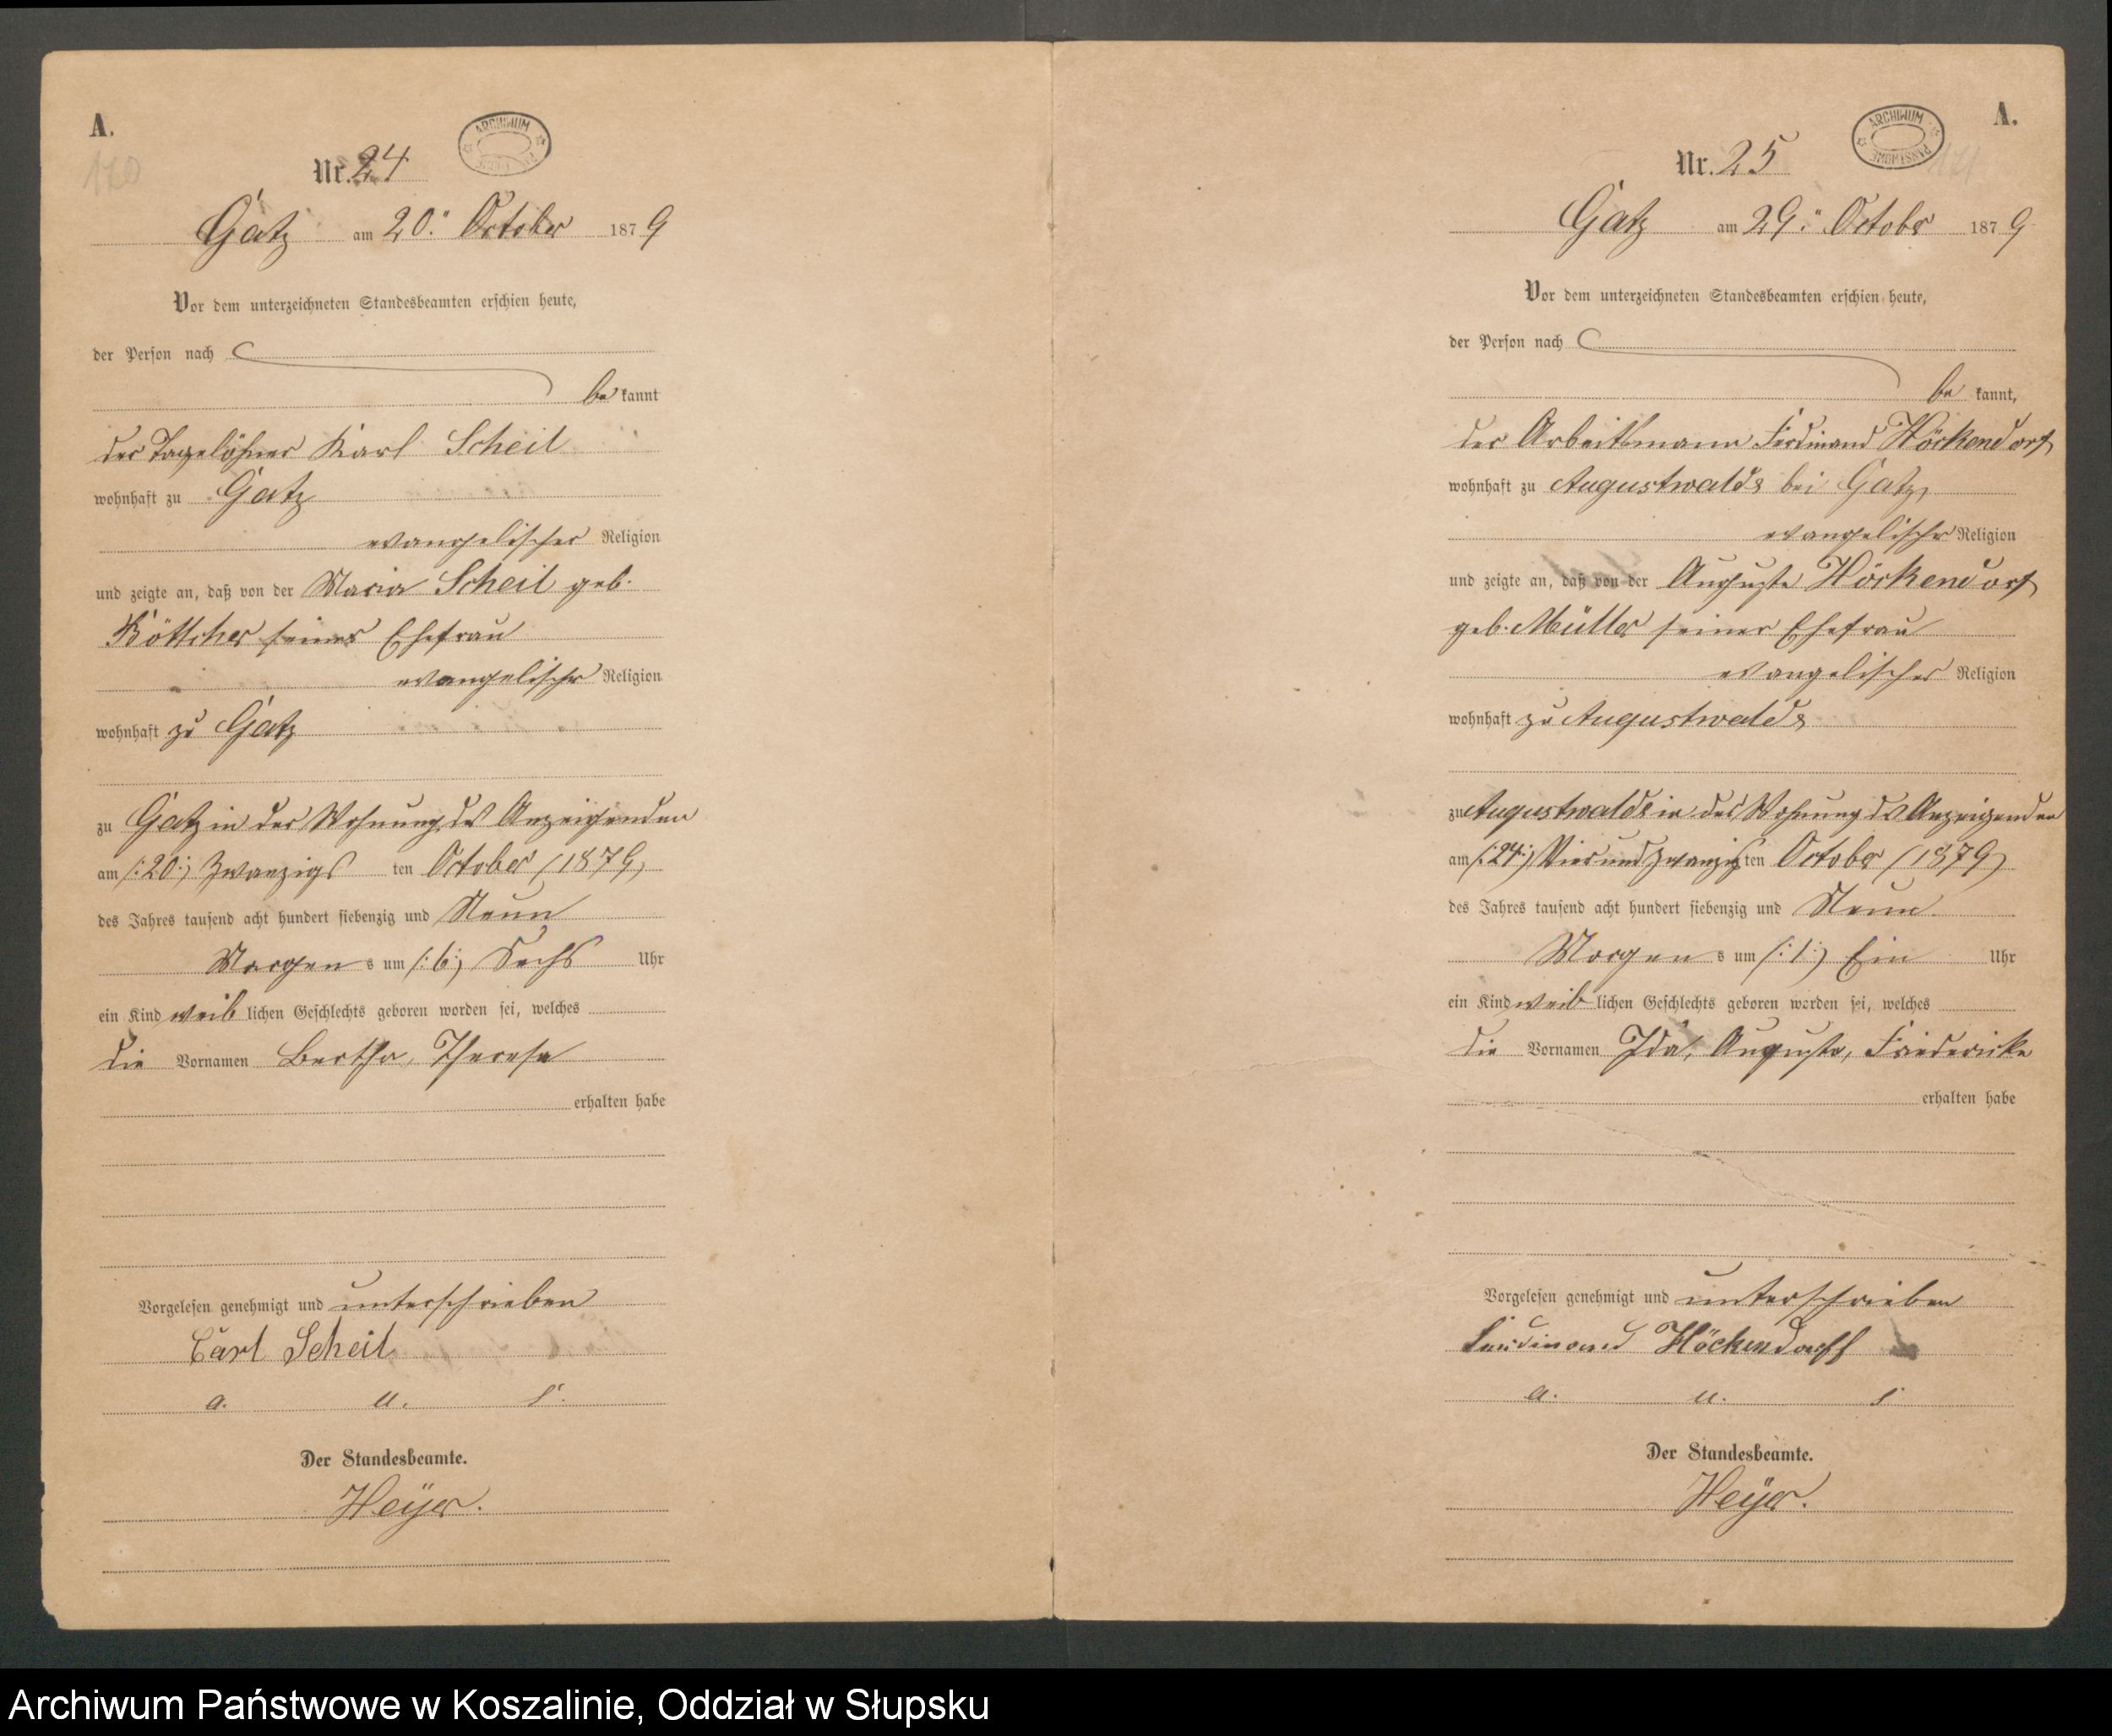 A.
ARCHIWUM
120
Nr. 24
Gatz am 20. October 1879
Vor dem unterzeichneten Standesbeamten erschien heute,
der Person nach
bekannt
der Tagelöhner Karl Scheil
wohnhaft zu Gatz
evangelischer Religion
und zeigte an, daß von der Maria Scheil geb.
Böttcher seiner Ehefrau
evangelischer Religion
wohnhaft zu Gatz
zu Gatz in der Wohnung des Anzeigenden
am /:20:/ Zwanzigs ten October /1879/
des Jahres tausend acht hundert siebenzig und Neun
Morgens um /:6:/ Sechs Uhr
ein Kind weiblichen Geschlechts geboren worden sei, welches
die Vornamen Bertha, Therese
erhalten habe
Vorgelesen genehmigt und unterschrieben
Carl Scheil
a. u. s.
Der Standesbeamte.
Heyer.
A.
ARCHIWUM PAŃSTWOWE
121
Nr. 25
Gatz am 29. October 1879
Vor dem unterzeichneten Standesbeamten erschien heute,
der Person nach
bekannt,
der Arbeitsmann Ferdinand Höckendorf
wohnhaft zu Augustwalde bei Gatz,
evangelischer Religion
und zeigte an, daß von der Auguste Höckendorf
geb. Müller seiner Ehefrau
evangelischer Religion
wohnhaft zu Augustwalde
zu Augustwalde in der Wohnung des Anzeigenden
am /:24:/ Vierundzwanzigsten October /1879/
des Jahres tausend acht hundert siebenzig und Neun
Morgens um /:1:/ Ein Uhr
ein Kind weiblichen Geschlechts geboren worden sei, welches
die Vornamen Ida, Auguste, Friedericke
erhalten habe
Vorgelesen genehmigt und unterschrieben
Ferdinand Höckendorff
a. u. s
Der Standesbeamte.
Heyer.
Archiwum Państwowe w Koszalinie, Oddział w Słupsku